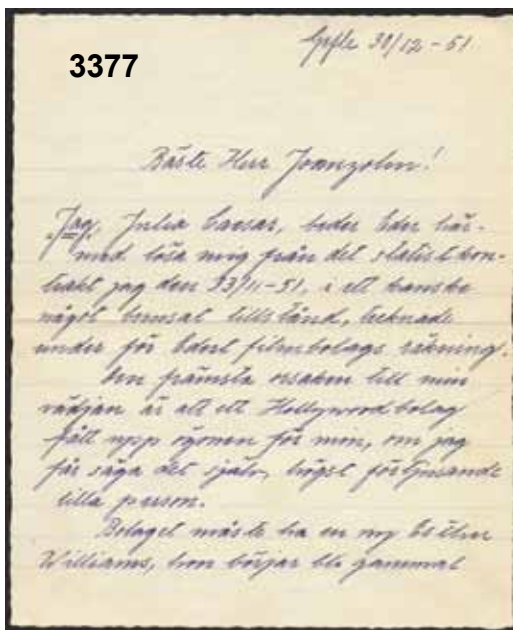 Gefle 30/12 - 51
3377
Bäste Herr Joanzohn!
Jag, Julia Caesar, beder Eder här-
med lösa mig från det statistkon-
trakt jag den 23/11-51, i ett kanske
något brusat tillstånd, tecknade
under för Edert filmbolags räkning.
Den främsta orsaken till min
vädjan är att ett Hollywoodbolag
fått upp ögonen för min, om jag
får säga det själv, högst förtjusande
lilla person.
Bolaget måste ha en ny Esther
Williams, hon börjar bli gammal